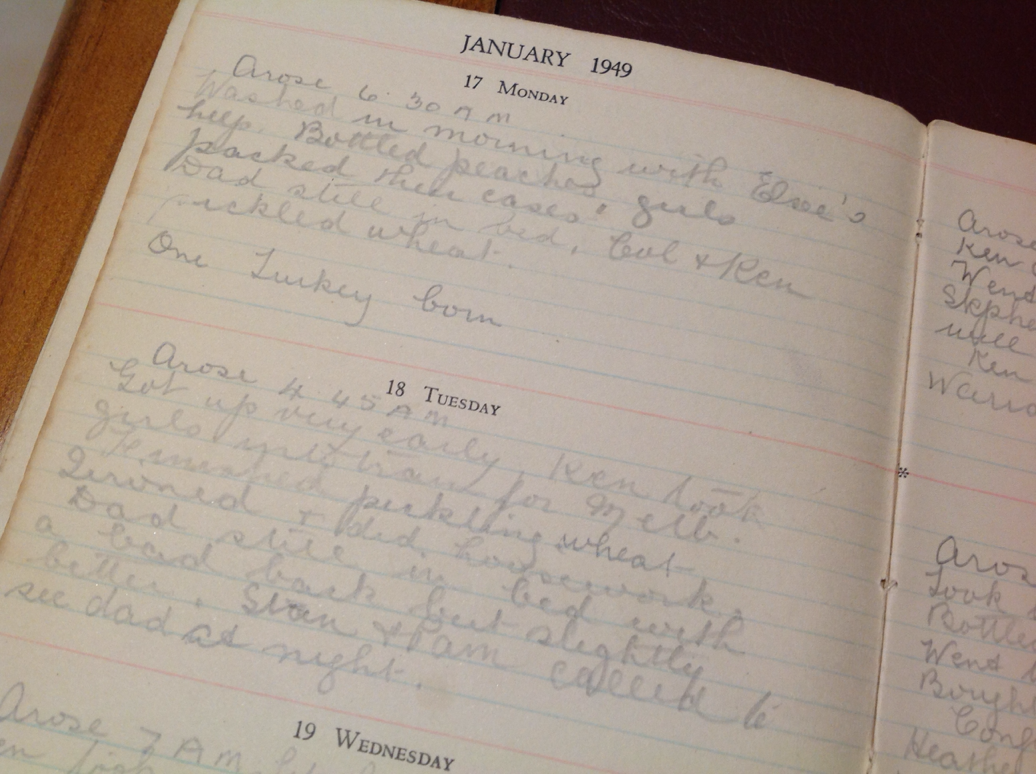 JANUARY 1949
17 MONDAY
Arose 6 30 AM
Washed in morning with Elsie's
help. Bottled peaches, girls
packed their cases.
Dad still in bed. Col & Ken
pickled wheat.
One Turkey born
18 TUESDAY
Arose 4 45 AM
Got up very early, Ken took
girls into train for Melb.
Finished pickling wheat
Ironed & did housework.
Dad still in bed with
a bad back but slightly
better. Stan & Pam called to
see dad at night.
19 WEDNESDAY
Arose 7 AM
Arose
Ken
Wend
Stephe
will
Ken
*
Aros
Took
Bottle
Went
Bough
Conf
Heather